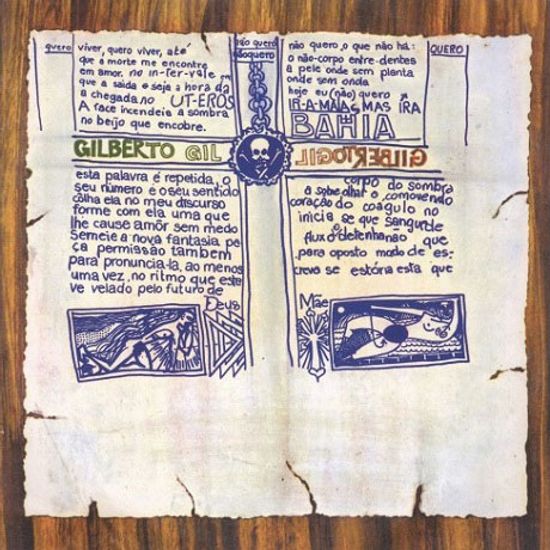 quero
viver, quero viver, até
que a morte me encontre
em amor. no in-ter-vale
que a saída e seja a hora da
a chegada no UT-EROS
A face incendeia a sombra
no beijo que encobre.
não quero
nãoquero
não quero o que não há:
o não-corpo entre-dentes
a pele onde sem planta
onde sem onda
hoje eu (não) quero
IR-A-MAIAS MAS IRA
BAHIA
QUERO
GILBERTO GIL
GILBERTOGIL
esta palavra é repetida, o
seu número e o seu sentido
colha ela no meu discurso
forme com ela uma que
lhe cause amor sem medo
Semeie a nova fantasia pe
ça permissão também
para pronunciá-la, ao menos
uma vez, no ritmo que este
ve velado pelo futuro de
Deus
corpo da sombra
a sobre olhar o comovendo
coração do coágulo no
inicia se que sangurde
fluxo detenhanão que
para oposto modo de es-
crevo se estória esta que
Mãe